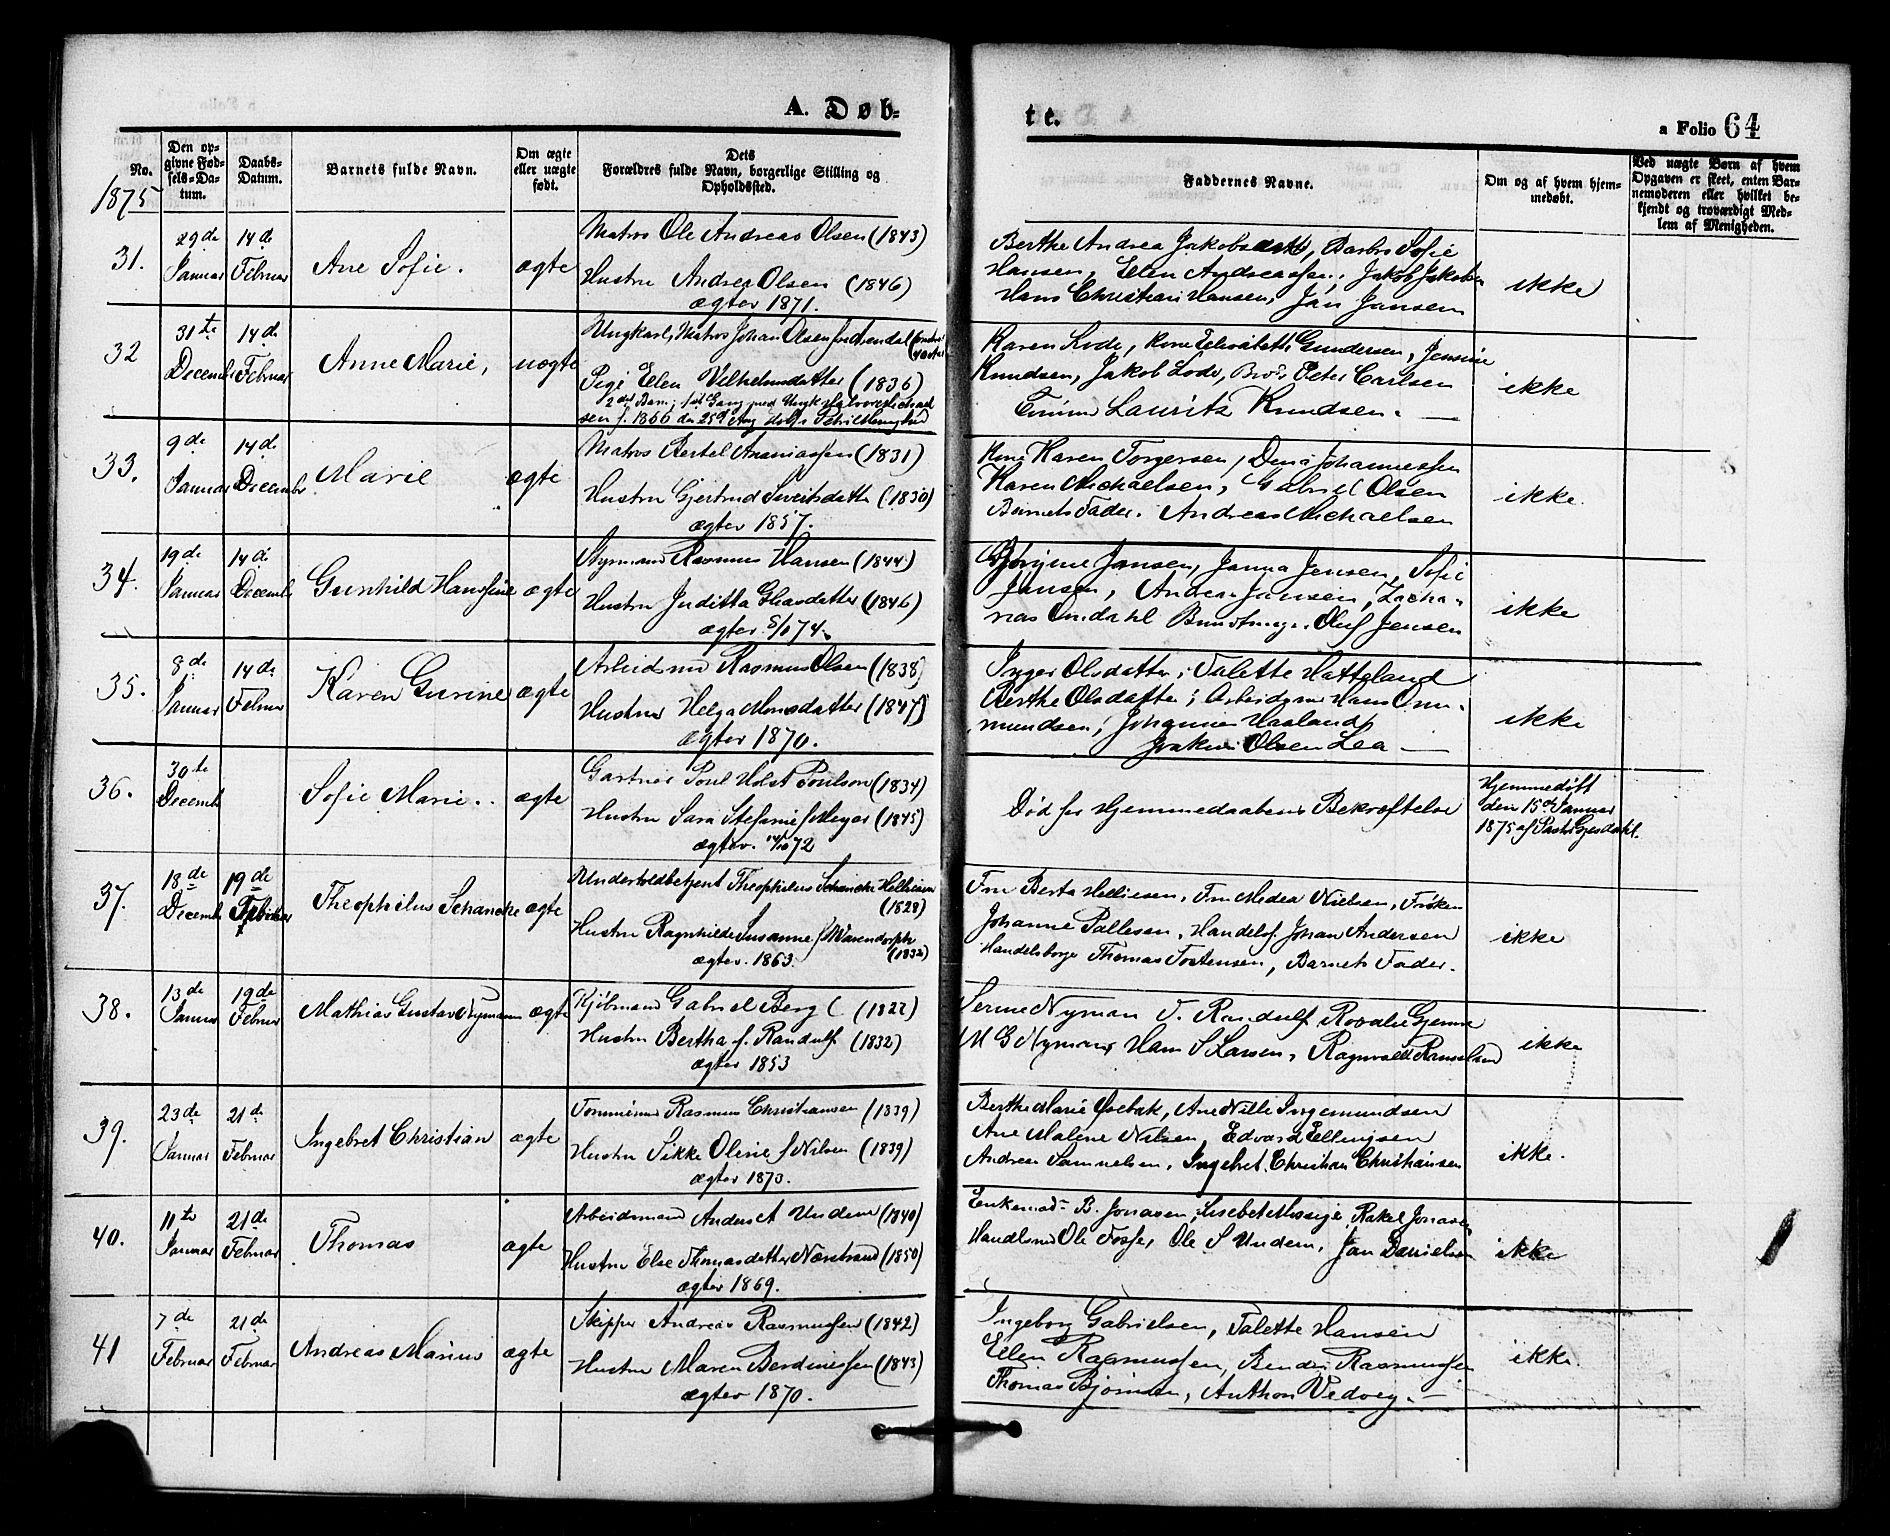 A. Døb-
te.
a Folio 64
No.
Den opgivne Fødsels-Datum.
Daabs-Datum.
Barnets fulde Navn.
Om ægte eller uægte født.
Dets Forældres fulde Navn, borgerlige Stilling og Opholdssted.
Faddernes Navne.
Om og af hvem hjemmedøbt.
Ved uægte Børn af hvem Opgaven er skeet, enten Barnemoderen eller hvilket bekjendt og troværdigt Medlem af Menigheden.
1875
31.
29de Januar
14de Februar
Ane Sofie.
ægte
Matros Ole Andreas Olsen (1843)
Hustru Andrea Olsen (1846)
ægtev 1871.
Berthe Andrea Jakobsdatt, Barbro Sofie
Hansen, Elen Andreassen, Jakob Jakobsen
Hans Christian Hansen, Jan Jansen
ikke
32
31te Decemb
14de Februar
Anne Marie,
uægte
Ungkarl, Matros Johan Olsen
Pige Elen Vilhelmsdatter (1836)
2det Barn;
Karen Lode, Kone Gundersen, Jensine
Knudsen, Jakob Lode, Peter Carlsen
Lauritz Knudsen.
ikke
33.
9de Januar
14de Decembr
Marie
ægte
Matros Bertel Ananiassen (1831)
Hustru Gjertrud Sivertsdatt (1830)
ægtev 1857.
Kone Karen Torgersen, Dena Johannessen
Karen Michaelsen, Gabriel Olsen
Barnets Fader. Andreas Michaelsen
ikke.
34.
19de Januar
14de Decemb
Gunhild Hansine
ægte
Styrmand Rasmus Hansen (1844)
Hustru Juditta (1846)
ægtev 8/10 74.
Jansen, Janna Jensen, Sofie
Jansen, Andrea Jansen, Zacha-
rias Omdahl Oluf Jensen
ikke
35.
8de Januar
14de Februar
Karen Gurine
ægte
Arbeidsmd Rasmus Olsen (1838)
Hustru Helga Monsdatter (1847)
ægtev 1870.
Inger Olsdatter, Talette Hatteland
Berthe Olsdatter; Arbeidsm Hans Om-
mundsen, Johannes Haaland,
Joakim Olsen Lea
ikke
36.
30te Decemb
Sofie Marie.
ægte
Gartner Poul Holst Poulson (1834)
Hustru Sara Stefanie f Meyer (1845)
ægtev. 14/10 72
Død før Hjemmedaabens Bekræftelse
Hjemmedøbt
den 15de Januar
1875 af Pastor Gjesdahl.
37.
18de Decemb
19de Februar
Theophilus Schancke
ægte
Underтoldbetjent Theophilus Schancke Helliesen
(1828)
Hustru Ragnhilde Susanne f Warendorph
(1832)
ægtev. 1863.
Fru Berta Helliesen, Fru Medea Nielsen, Frøken
Johanne Pallesen, Handelsf. Johan Andersen
Handelsborger Thomas Tostensen, Barnets Fader.
ikke
38.
13de Januar
19de Februar
Mathias Gustav Nyman
ægte
Kjøbmand Gabriel Berg (1822)
Hustru Bertha f. Randulf (1832)
ægtev 1853
Serine Nyman F. Randulf
M G Nyman Hans S Larsen,
ikke
39.
23de Januar
21de Februar
Ingebret Christian
ægte
Tømmermd Rasmus Christiansen (1839)
Hustru Sikke Oline f Nilsen (1839)
ægtev 1873.
Berthe Marie Øvebak, Ane Nille Ingemundsen
Ane Malene Nilsen, Edvard Ellingsen
Andreas Samuelsen, Ingebret Christian Christiansen
ikke.
40.
11te Januar
21de Februar
Thomas
ægte
Arbeidsmand Anders A Undem (1840)
Hustru Else Thomasdatter Nærstrand (1850)
ægtev 1869.
Enkemad B. Jonasen; Lisebet Missige, Rakel Jonasen
Handlsmd Ole Fosse, Ole S Undem, Jan Danielsen
ikke
41
7de Februar
21de Februar
Andreas Marius
ægte
Skipper Andreas Rasmussen (1842)
Hustru Maren Berdinessen (1843)
ægtev 1870.
Ingeborg Gabrielsen, Talette Hansen
Elen Rasmussen, Rasmussen
Thomas Bjørnsen, Anthon Vedvey.
ikke.